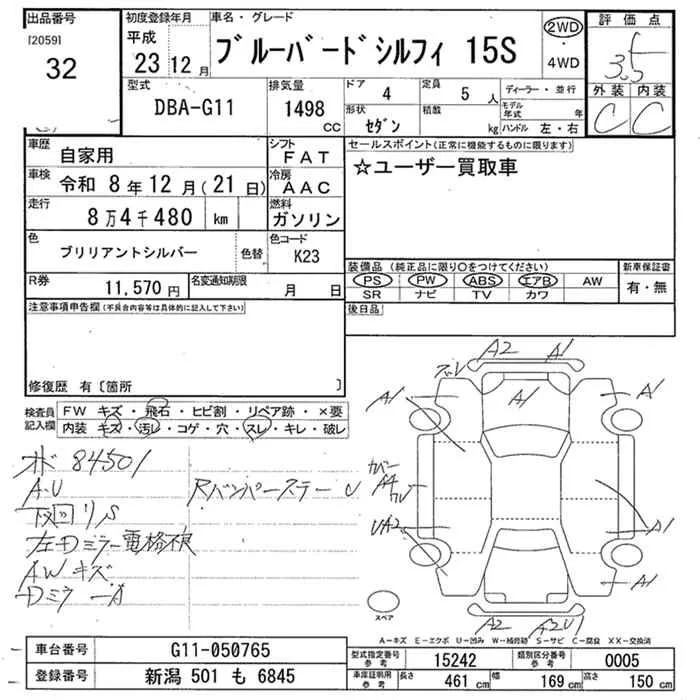 出品番号 初度登録年月 車名・グレード 評価点
[2059]
32
平成 23 12月 ブルーバードシルフィ 15S 2WD ・ 4WD 3.5
外装 内装
C C
型式 排気量 ドア 定員
DBA-G11 1498 CC 4 5 人 ディーラー・並行
形状 積載 モデル年式 年
セダン kg ハンドル 左・右
車歴 自家用 シフト FAT
セールスポイント(正常に機能するものに限ります)
☆ユーザー買取車
車検 令和 8年 12月(21日) 冷房 AAC
走行 8万4千480 km 燃料 ガソリン
色 ブリリアントシルバー 色替 色コード K23
装備品(純正品に限り○をつけてください) 新車保証書
PS PW ABS エアB AW 有・無
SR ナビ TV カワ
R券 11,570円 名変通知期限 月 日
後日品
注意事項申告欄(不具合内容等は具体的に記入して下さい)
修復歴 有〔箇所 〕
検査員記入欄 FW キズ・飛石・ヒビ割・リペア跡・×要
内装 キズ・汚レ・コゲ・穴・スレ・キレ・破レ
84501
A・U RバンパーステーU
下回りS
左Dミラー電格不良
AWキズ
A2 A1
A1 A1 A1
カバー
A4
UA2 A1
A1
A2 A2U1
スペア
A-キズ E-エクボ U-凹み W-補修跡 S-サビ C-腐食 XX-交換済
車台番号 G11-050765
登録番号 新潟 501 も 6845
型式指定番号 参考 15242 類別区分番号 参考 0005
車庫証明用 参考 長さ 461 cm 幅 169 cm 高さ 150 cm